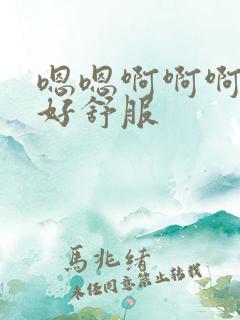 嗯嗯啊啊啊
好舒服
馬兆緒
未任同意禁止轉載